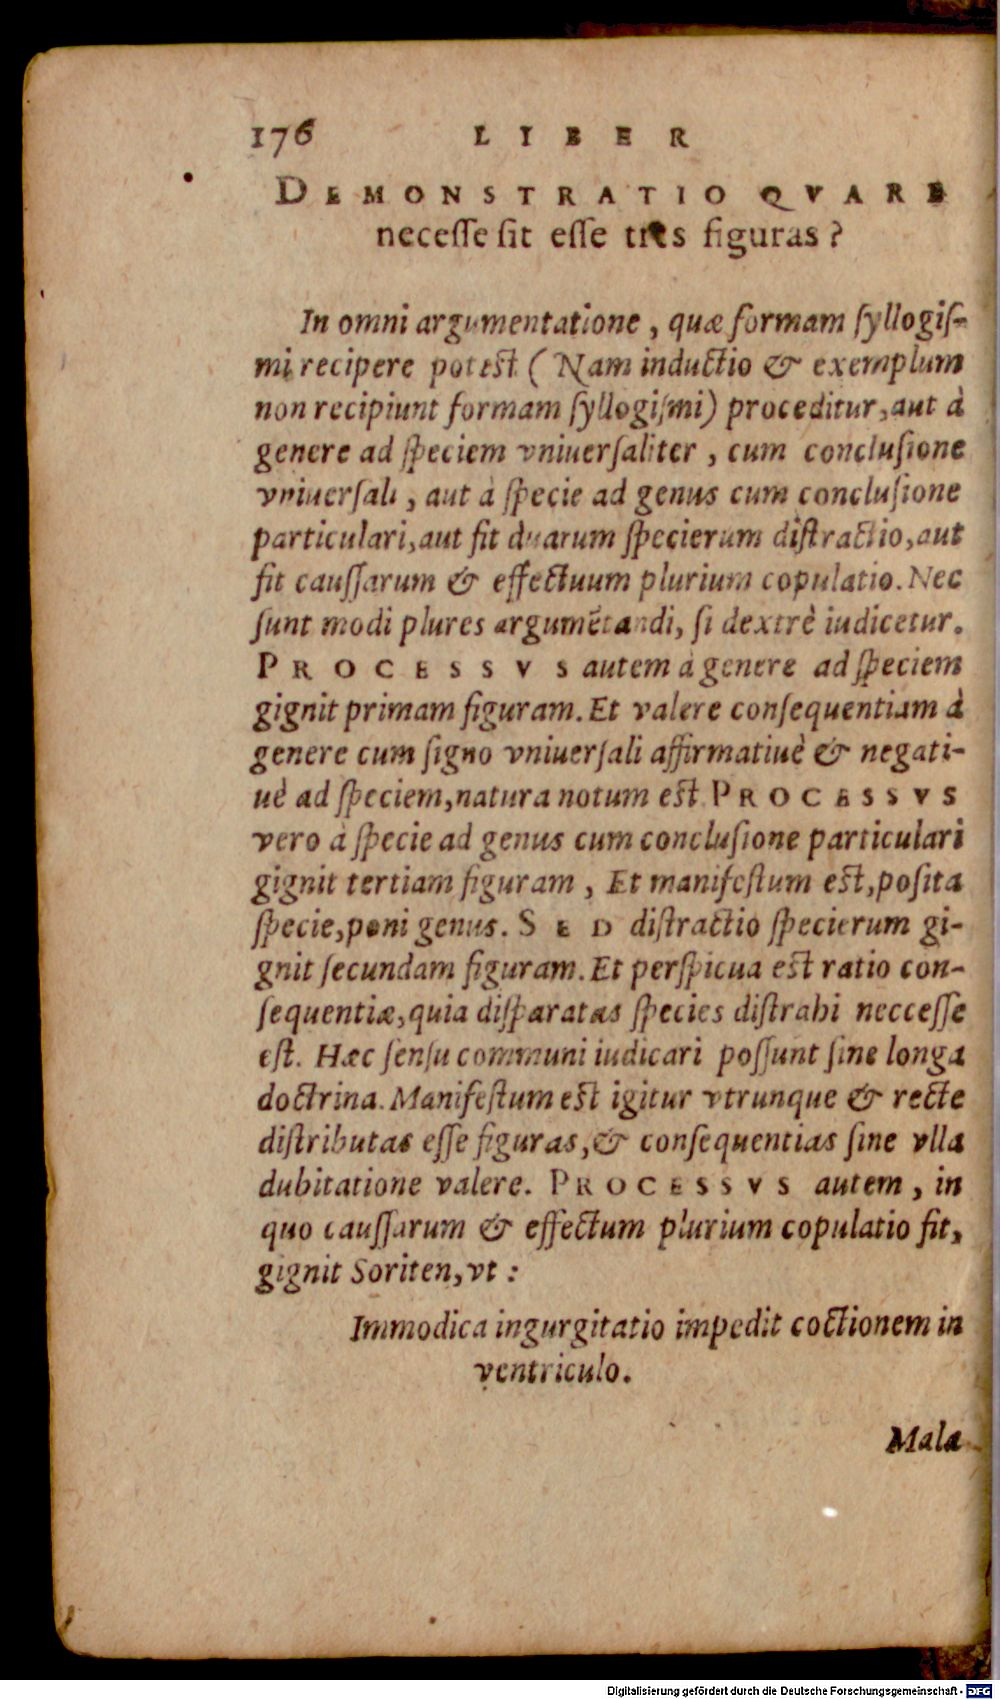 176 LIBER
DEMONSTRATIO QVARE
necesse sit esse tres figuras?
In omni argumentatione, quæ formam syllogis-
mi recipere potest (Nam inductio & exemplum
non recipiunt formam syllogismi) proceditur, aut à
genere ad speciem vniuersaliter, cum conclusione
vniuersali, aut à specie ad genus cum conclusione
particulari, aut fit duarum specierum distractio, aut
fit caussarum & effectuum plurium copulatio. Nec
sunt modi plures argumētandi, si dextrè iudicetur.
PROCESSVS autem à genere ad speciem
gignit primam figuram. Et valere consequentiam à
genere cum signo vniuersali affirmatiuè & negati-
uè ad speciem, natura notum est PROCESSVS
vero à specie ad genus cum conclusione particulari
gignit tertiam figuram, Et manifestum est, posita
specie, poni genus. SED distractio specierum gi-
gnit secundam figuram. Et perspicua est ratio con-
sequentiæ, quia disparatas species distrahi neccesse
est. Hæc sensu communi iudicari possunt sine longa
doctrina. Manifestum est igitur vtrunque & recte
distributas esse figuras, & consequentias sine vlla
dubitatione valere. PROCESSVS autem, in
quo caussarum & effectum plurium copulatio fit,
gignit Soriten, vt:
Immodica ingurgitatio impedit coctionem in
ventriculo.
Mala
Digitalisierung gefördert durch die Deutsche Forschungsgemeinschaft - DFG